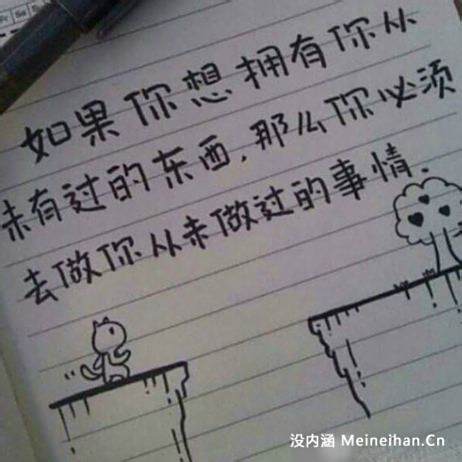 如果你想拥有你从
未有过的东西,那么你必须
去做你从未做过的事情.
没内涵 Meineihan.Cn